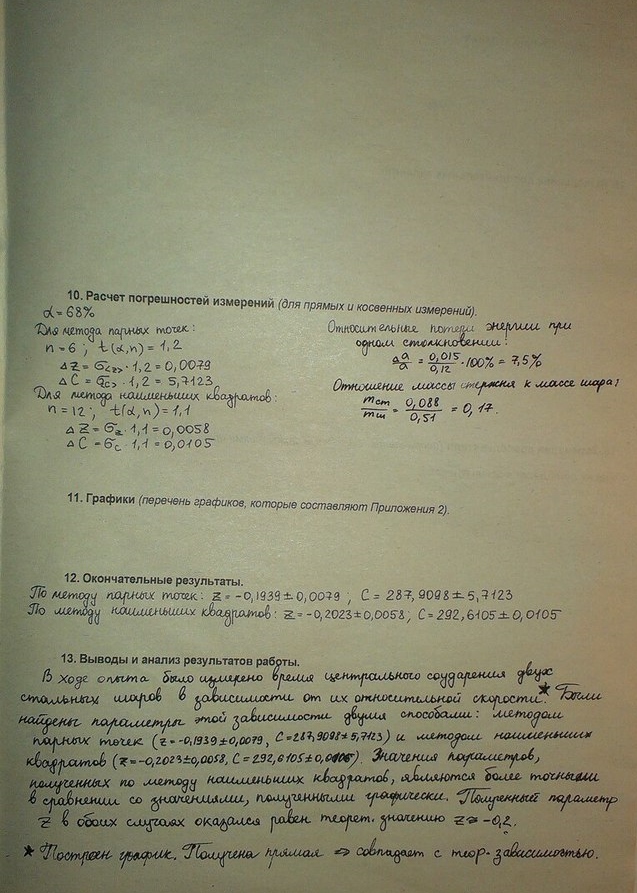 10. Расчет погрешностей измерений (для прямых и косвенных измерений).
α = 68%
Для метода парных точек:
n = 6 ; t(α, n) = 1,2
Δz = σ<z> · 1,2 = 0,0079
ΔC = σ<C> · 1,2 = 5,7123
Для метода наименьших квадратов:
n = 12 ; t(α, n) = 1,1
Δz = σz · 1,1 = 0,0058
ΔC = σC · 1,1 = 0,0105
Относительные потери энергии при
одном столкновении:
Δa/a = 0,015/0,12 · 100% = 7,5%
Отношение массы стержня к массе шара:
mст/mш = 0,088/0,51 = 0,17.
11. Графики (перечень графиков, которые составляют Приложения 2).
12. Окончательные результаты.
По методу парных точек: z = -0,1939 ± 0,0079 ; C = 287,9098 ± 5,7123
По методу наименьших квадратов: z = -0,2023 ± 0,0058; C = 292,6105 ± 0,0105
13. Выводы и анализ результатов работы.
В ходе опыта было измерено время центрального соударения двух
стальных шаров в зависимости от их относительной скорости.★ Были
найдены параметры этой зависимости двумя способами: методом
парных точек (z = -0,1939 ± 0,0079, C = 287,9098 ± 5,7123) и методом наименьших
квадратов (z = -0,2023 ± 0,0058, C = 292,6105 ± 0,0105). Значения параметров,
полученных по методу наименьших квадратов, являются более точными
в сравнении со значениями, полученными графически. Полученный параметр
z в обоих случаях оказался равен теорет. значению z ≈ -0,2.
★ Построен график. Получена прямая ⇒ совпадает с теор. зависимостью.